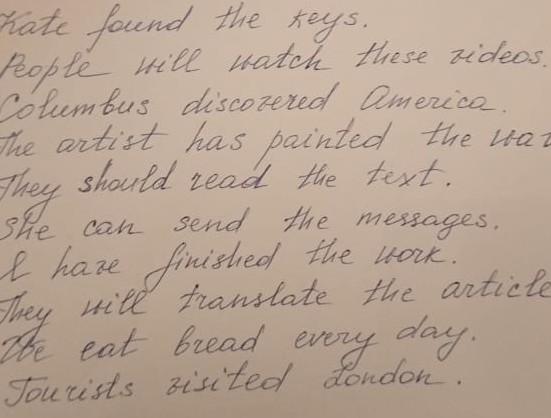 Kate found the keys.
People will watch these videos.
Columbus discovered America.
The artist has painted the
They should read the text.
She can send the messages.
I have finished the work.
They will translate the article
We eat bread every day.
Tourists visited London.